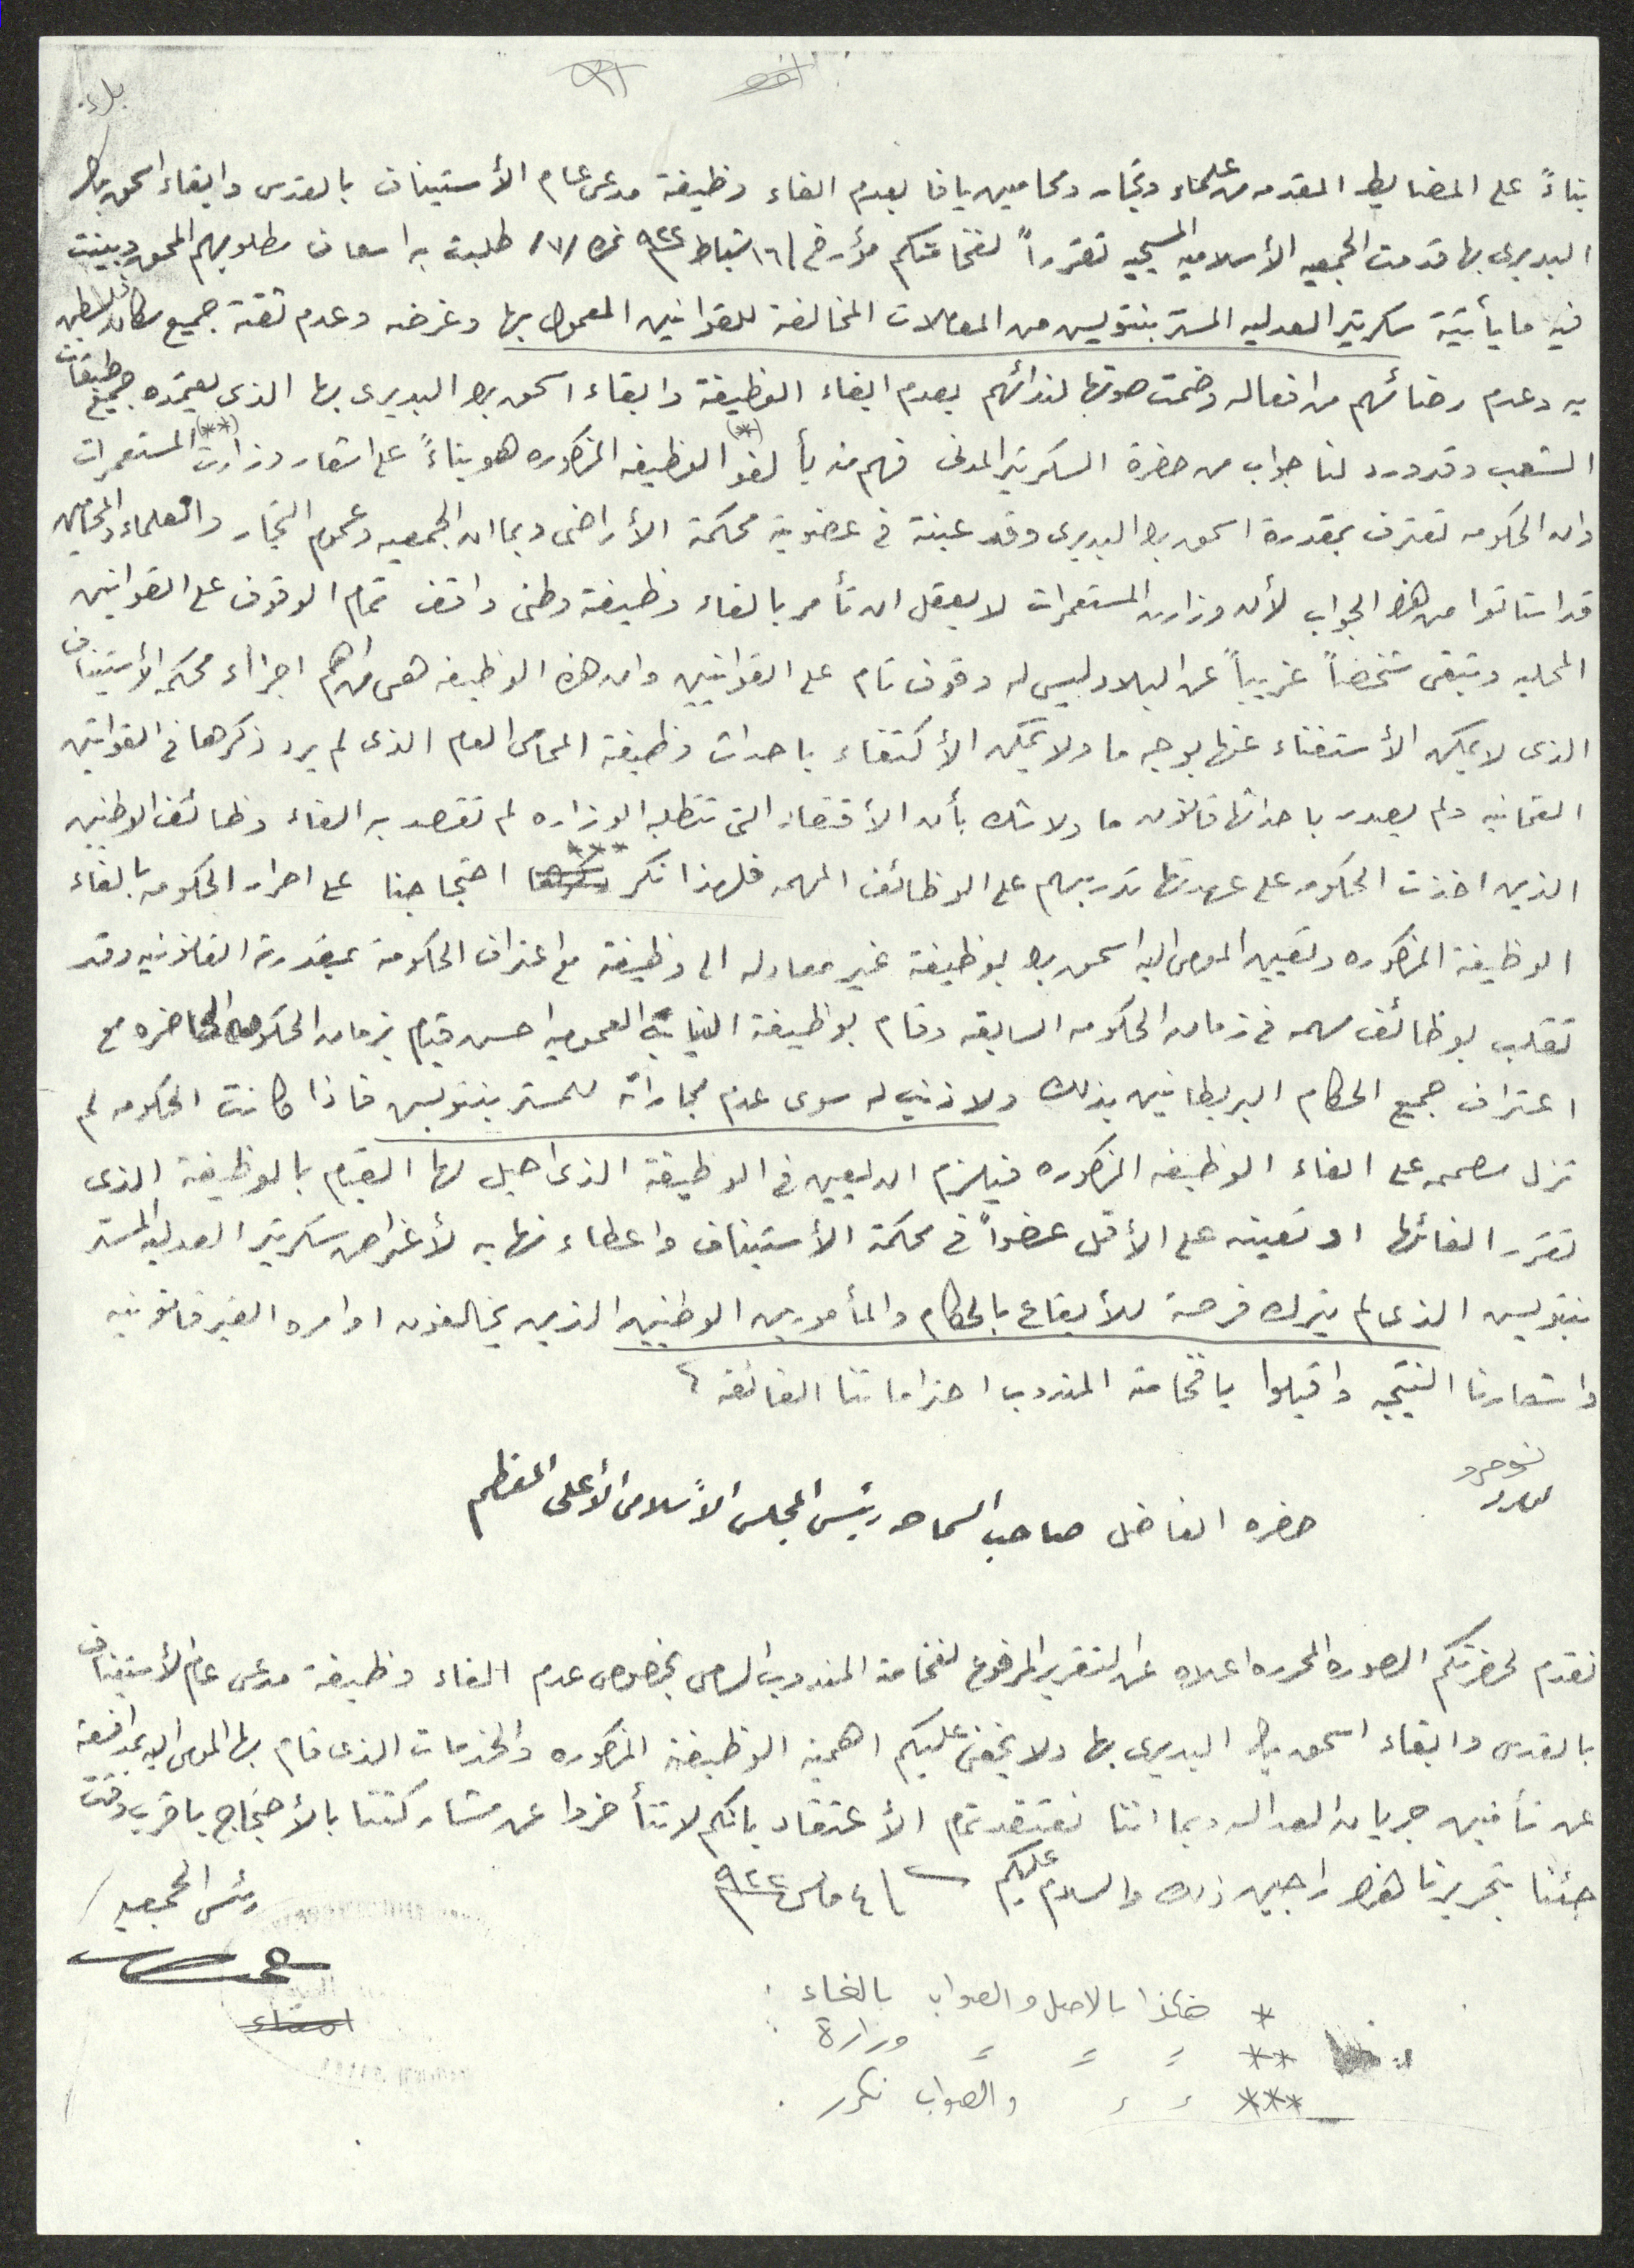 بناءً على المضابط المقدمه من علماء وتجار ومحاميين يافا بعدم الغاء وظيفة مدعى عام الأستيناف بالقدس وابقاء اسحق بك
البديرى بها قدمت الجمعيه الأسلاميه المسيحيه تقرراً لفخامتكم مؤرخ ١٦ شباط ٩٢٢ نمره /٧/ طلبت به اسعاف مطلوبهم المحق وبينت
فيه ما يأتيه سكرتير العدليه المستر بنتويس من المعاملات المخالفة للقوانين المعمول بها وغرضه وعدم ثقة جميع سكان فلسطين
به وعدم رضائهم من افعاله وضمت صوتها لندائهم بعدم الغاء الوظيفة وابقاء اسحق بك البديرى بها الذى يعتمده جميع طبقات
الشعب وقد ورد لنا جواب من حضرة السكرتير المدنى فهم منه بألغو (*) الوظيفه المذكوره هو بناءً على اشعار وزارت (**) المستعمرات
وان الحكومه تعترف بمقدرة اسحق بك البديرى وقد عينته في عضوية محكمة الأراضى وبما ان الجمعيه وعموم التجار والعلماء والمحامين
قد استاتوا من هذا الجواب لأن وزارت المستعمرات لا يعقل ان تأمر بالغاء وظيفة وطنى واقف تمام الوقوف على القوانين
المحليه وتبقى شخصاً غريباً عن البلاد ليس له وقوف تام على القوانيين وان هذه الوظيفه هى من اهم اجزاء محكمه الأستيناف
الذى لا يمكن الأستغناء عنها بوجه ما ولا يمكن الأكتفاء باحداث وظيفة المحامى العام الذى لم يرد ذكرها في القوانين
العثمانيه ولم يصدر باحداثها قانون ما ولا شك بأن الأقتصاد التى تتطلبه الوزاره لم تقصد به الغاء وظائف الوطنيين
الذين اخذت الحكومه على عهدتها تدريبهم على الوظائف المهمه فلهذا نكر *** احتجاجنا على اصرار الحكومه بالغاء
الوظيفة المذكوره وتعيين المومى اليه اسحق بك بوظيفة غير معادله الى وظيفة مع اعتراف الحكومة بمقدرته القانونيه وقد
تقلب بوظائف مهمه في زمان الحكومه السابقه وقام بوظيفة النيابة العموميه احسن قيام بزمان الحكومه الحاضره مع
اعتراف جميع الحكام البريطانيين بذلك ولا ذنب له سوى عدم مجاراته للمستر بنتويس فاذا كانت الحكومه لم
تزل مصممه على الغاء الوظيفه المذكوره فيلزم ان يعين في الوظيفة الذى احيل لها القيام بالوظيفة الذى
تقرر الغائها او تعينه على الأقل عضواً في محكمة الأستيناف واعطاء نهايه لأغراض سكرتير العدليه المستر
بنتويس الذى لم يترك فرصة للأيقاع بالحكام والمأمورين الوطنيين الذين يخالفون اوامره الغير قانونيه
واشعارنا النتيجه واقبلوا يا فخامة المندوب احتراماتنا الفائقة
حضره الفاضل صاحب السماحه رئيس المجلس الأسلامى الأعلى المعظم
نقدم لحضرتكم الصوره المحرره اعلاه عن التقرير المرفوع لفخامة المندوب السامى بخصوص عدم الغاء وظيفة مدعى عام الأستيناف
بالقدس وابقاء اسحق بك البديرى بها ولا يخفى عليكم اهمية الوظيفة المذكوره والخدمات الذى قام بها المومى اليه بمدافعة
عن تأمين جريان العداله وبما اننا نعتقد تمام الأعتقاد بانكم لا تتأخروا عن مشاركتنا بالأحتجاج باقرب وقت
جئنا بتحريرنا هذا راجين ذلك والسلام عليكم ٤ مارس ٩٢٢
رئيس الجمعيه
امضاء
* هكذا بالاصل والصواب بالغاء .
** " " " وزارة .
*** " " والصواب نكرر .